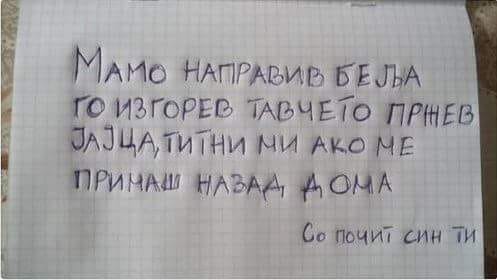 МАМО НАПРАВИВ БЕЉА
ГО ИЗГОРЕВ ТАВЧЕТО ПРЖЕВ
ЈАЈЦА, ТИТНИ МИ АКО МЕ
ПРИМАШ НАЗАД ДОМА
Со почит син ти